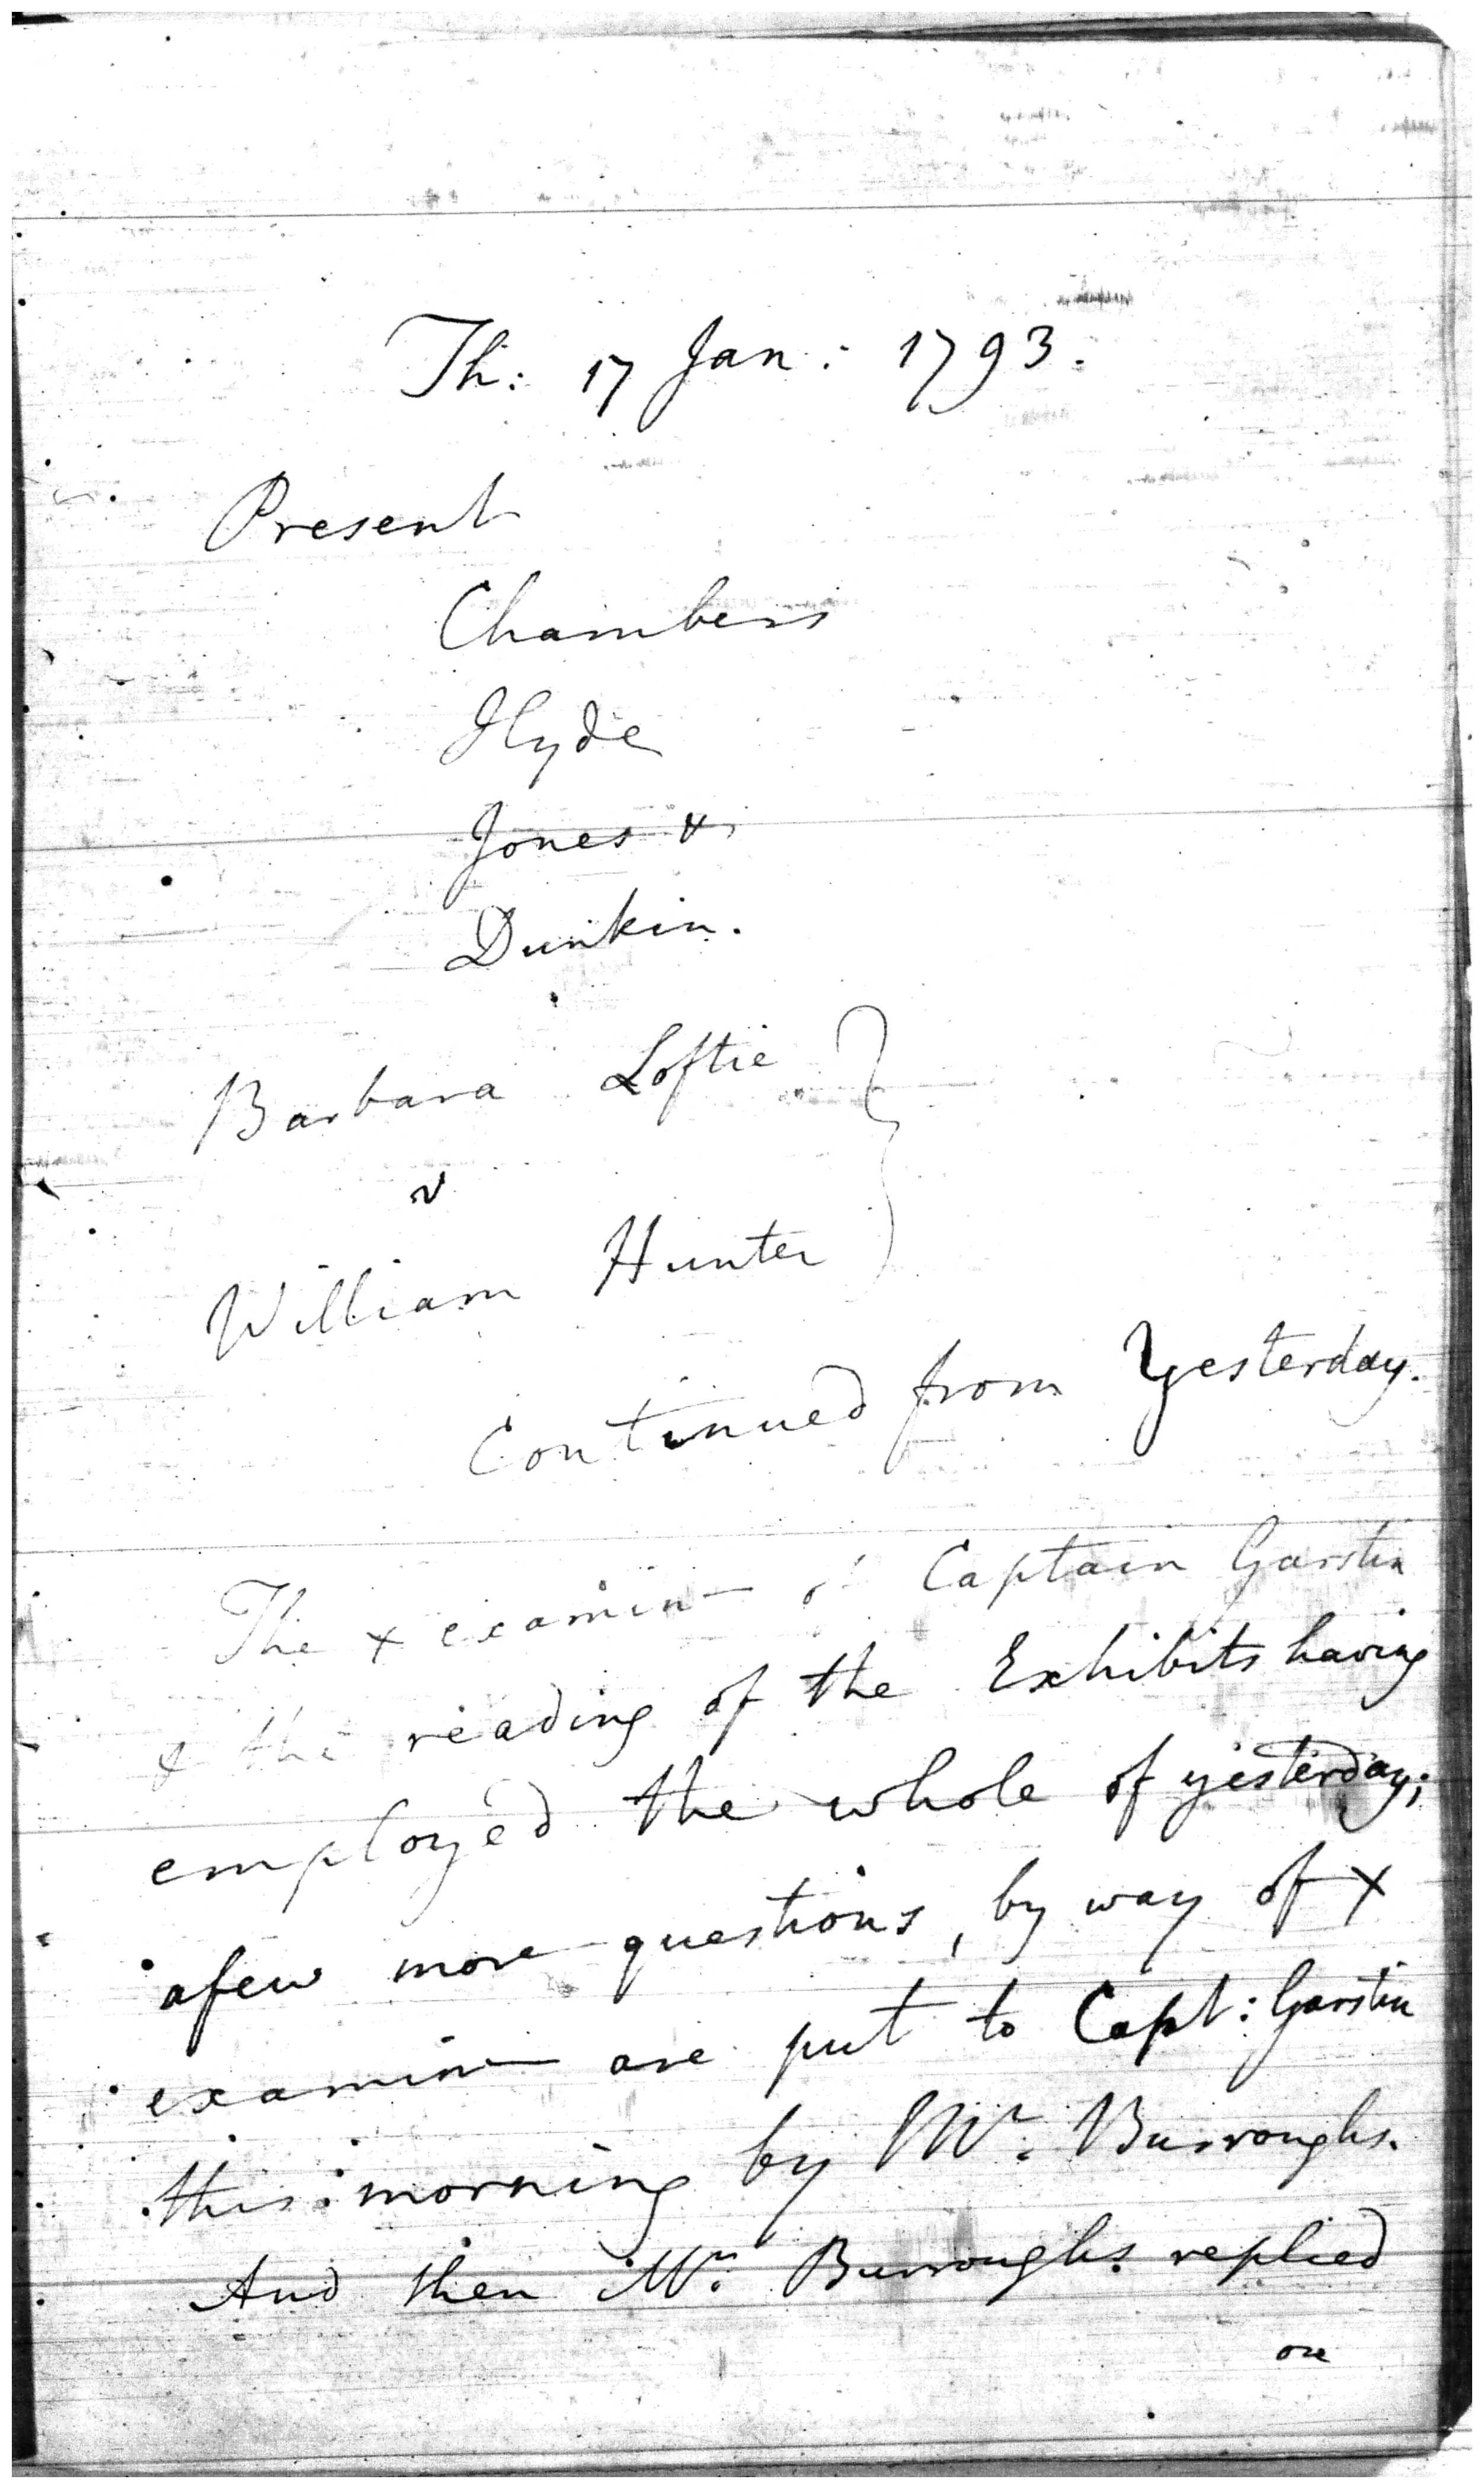 Th: 17 Jan: 1793.
Present
Chambers
Hyde
Jones &
Dunkin.
Barbara Loftie
v
William Hunter
Continued from Yesterday.
The x examin— of Captain Garstin
& the reading of the Exhibits having
employed the whole of yesterday;
a few more questions, by way of x
examin— are put to Capt: Garstin
this morning by Mr. Burroughs.
And then Mr. Burroughs replied
on